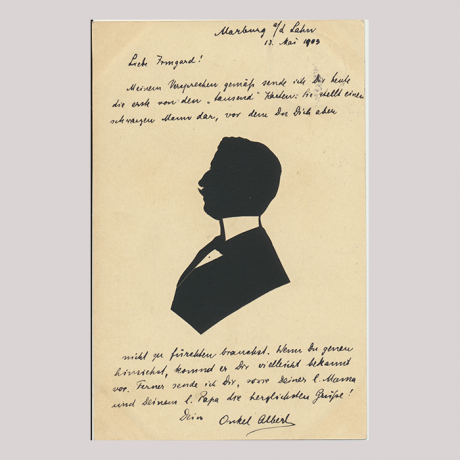 Marburg a/d Lahn
13. Mai 1903
Liebe Irmgard!
Meinem Versprechen gemäß sende ich Dir heute
die erste von den „tausend“ Karten: Sie stellt einen
schwarzen Mann dar, vor dem Du Dich aber
nicht zu fürchten brauchst. Wenn Du genau
hinsiehst, kommt er Dir vielleicht bekannt
vor. Ferner sende ich Dir, sowie Deiner l. Mama
und Deinem l. Papa die herzlichsten Grüße!
Dein Onkel Albert